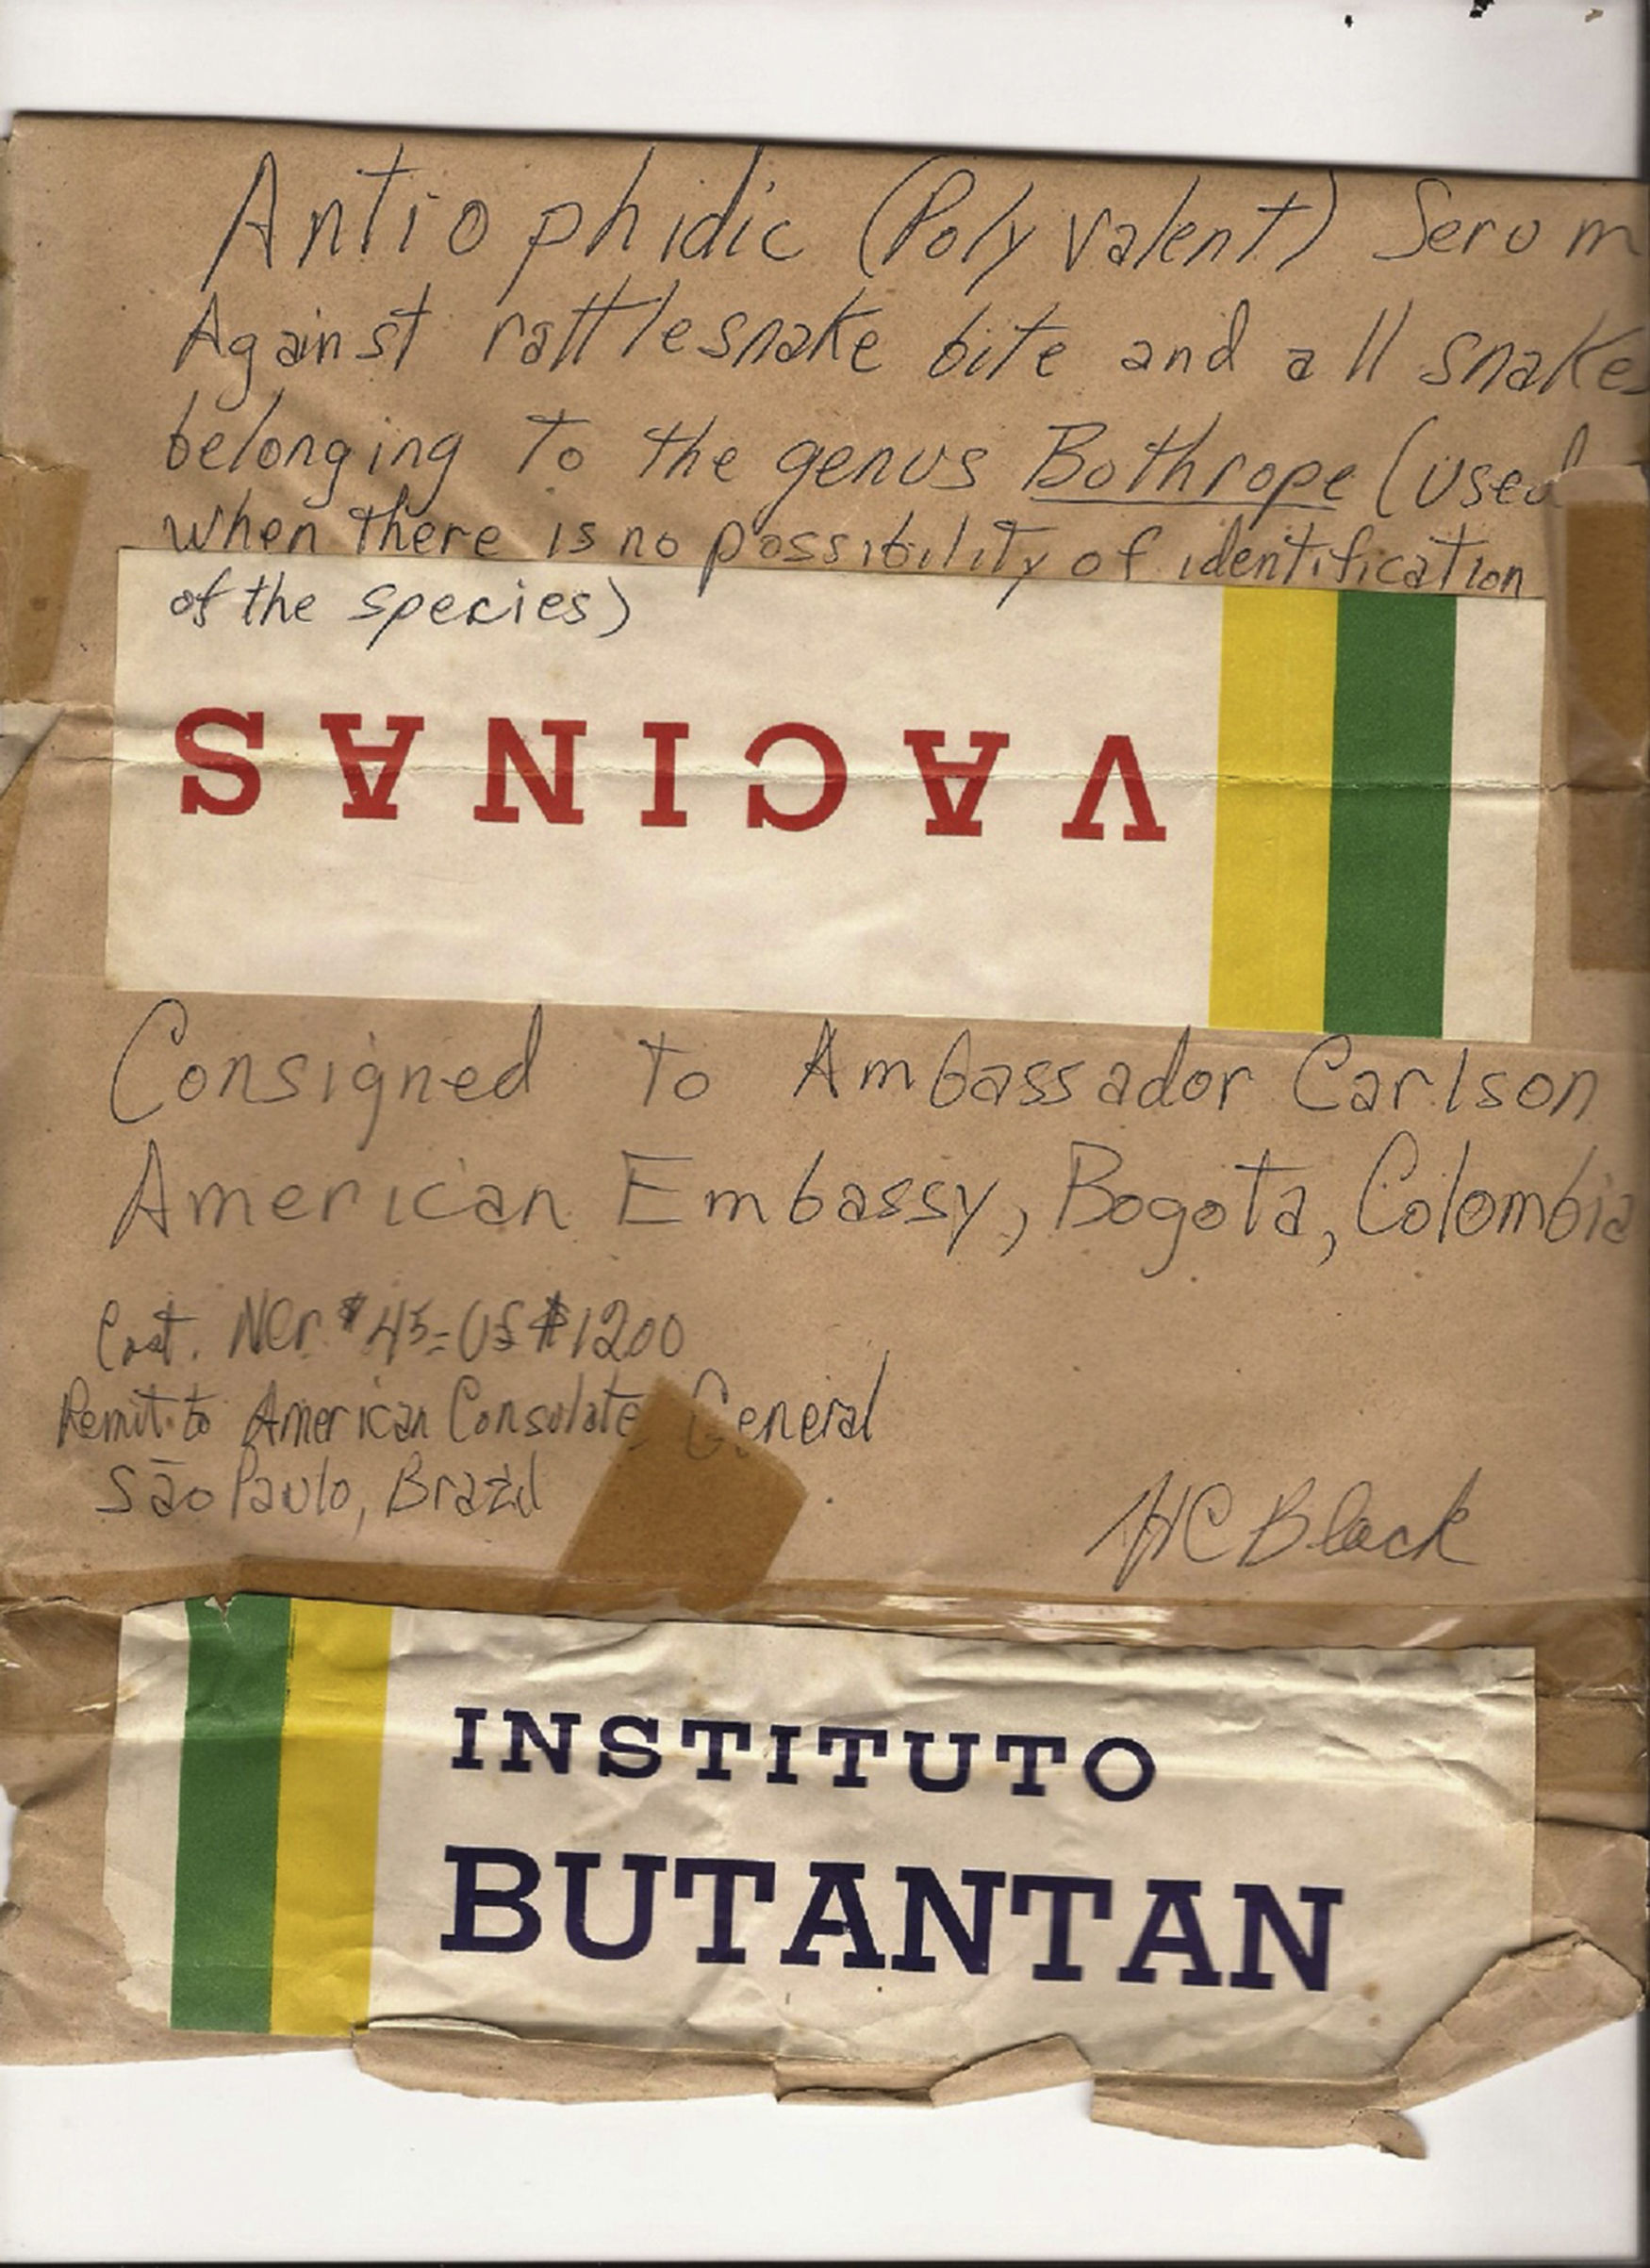 Antiophidic (Polyvalent) Serum
Against rattlesnake bite and all snakes
belonging to the genus Bothrope (used
when there is no possibility of identification
of the species)
VACINAS
Consigned to Ambassador Carlson
American Embassy, Bogota, Colombia
Cost. NCr $45=US $1200
Remit to American Consulate General
São Paulo, Brazil
HC Black
INSTITUTO
BUTANTAN